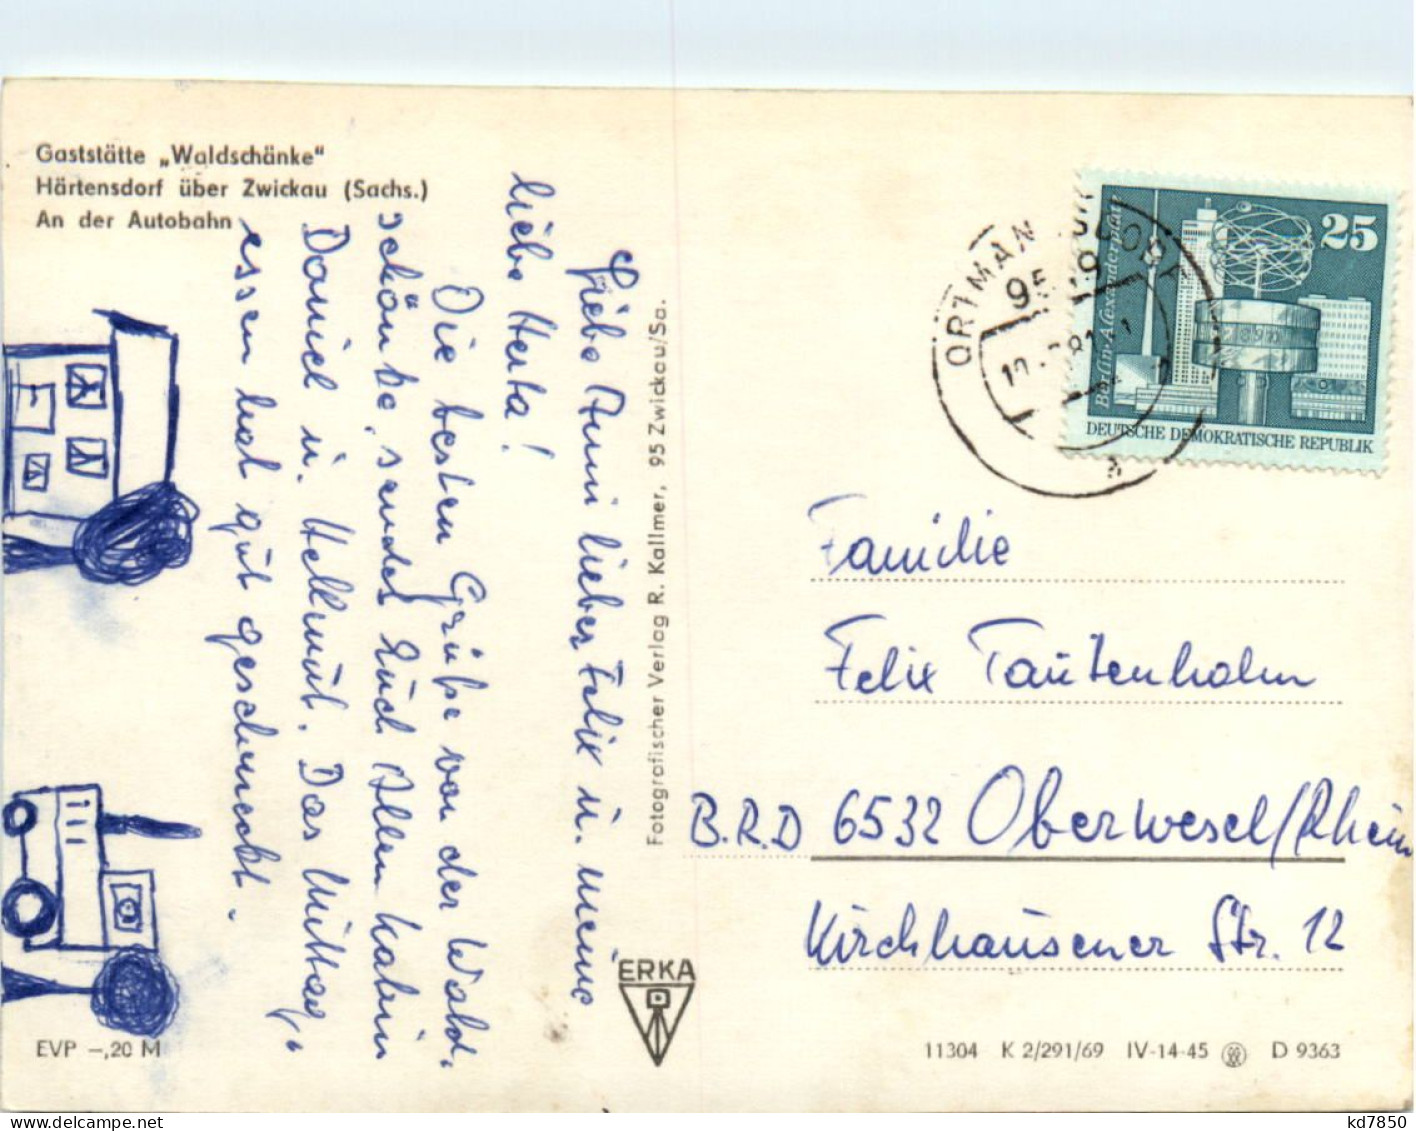 Gaststätte „Waldschänke"
Härtensdorf über Zwickau (Sachs.)
An der Autobahn
Liebe Anni lieber Felix u. meine
liebe Herta!
Die besten Grüße von der Wald-
schänke, sendet Euch Allen
Daniel u. Hellmut. Das Mittag-
essen hat gut geschmeckt.
EVP –,20 M
Fotografischer Verlag R. Kallmer, 95 Zwickau/Sa.
ERKA
ORTMANNSDORF
25
Berlin-Alexanderplatz
DEUTSCHE DEMOKRATISCHE REPUBLIK
Familie
Felix Tautenhahn
B.R.D 6532 Oberwesel/Rhein
Kirchhausener Str. 12
11304 K 2/291/69 IV-14-45 D 9363
kd7850